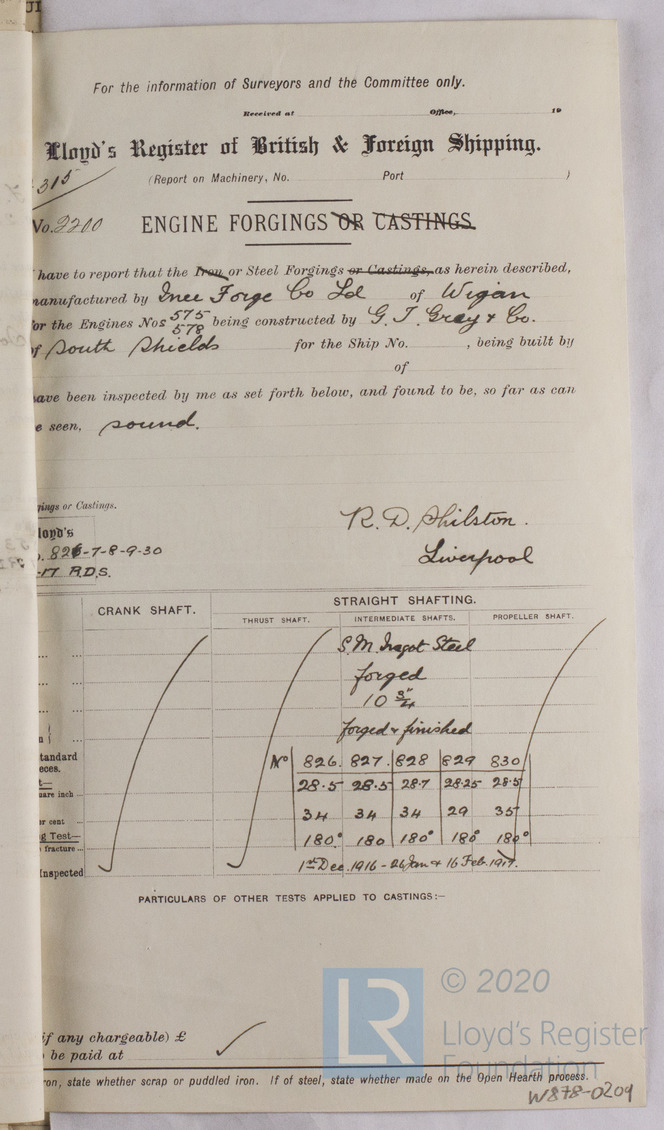 For the information of Surveyors and the Committee only.
Received at Office, 19
Lloyd's Register of British & Foreign Shipping.
315
(Report on Machinery, No. Port )
No. 2200
ENGINE FORGINGS OR CASTINGS
I have to report that the Iron or Steel Forgings or Castings, as herein described,
manufactured by Ince Forge Co Ld of Wigan
for the Engines Nos 575 578 being constructed by G. T. Grey & Co.
of South Shields for the Ship No. , being built by
of
have been inspected by me as set forth below, and found to be, so far as can
be seen, sound.
gings or Castings.
R. D. Shilston.
Liverpool
loyd's
826-7-8-9-30
-17 R.D.S.
CRANK SHAFT. STRAIGHT SHAFTING.
THRUST SHAFT. INTERMEDIATE SHAFTS. PROPELLER SHAFT.
S.M. Ingot Steel
forged
10 3/4"
forged & finished
tandard
eces.
No 826. 827. 828 829 830
28.5 28.5 28.7 28.25 28.5
uare inch
er cent 34 34 34 29 35
g Test—
fracture 180° 180 180° 180° 180°
Inspected 1st Dec. 1916 - 26 Jan & 16 Feb. 1917.
PARTICULARS OF OTHER TESTS APPLIED TO CASTINGS:—
if any chargeable) £
be paid at
LR
© 2020
Lloyd's Register
Foundation
ron, state whether scrap or puddled iron. If of steel, state whether made on the Open Hearth process.
W878-0209